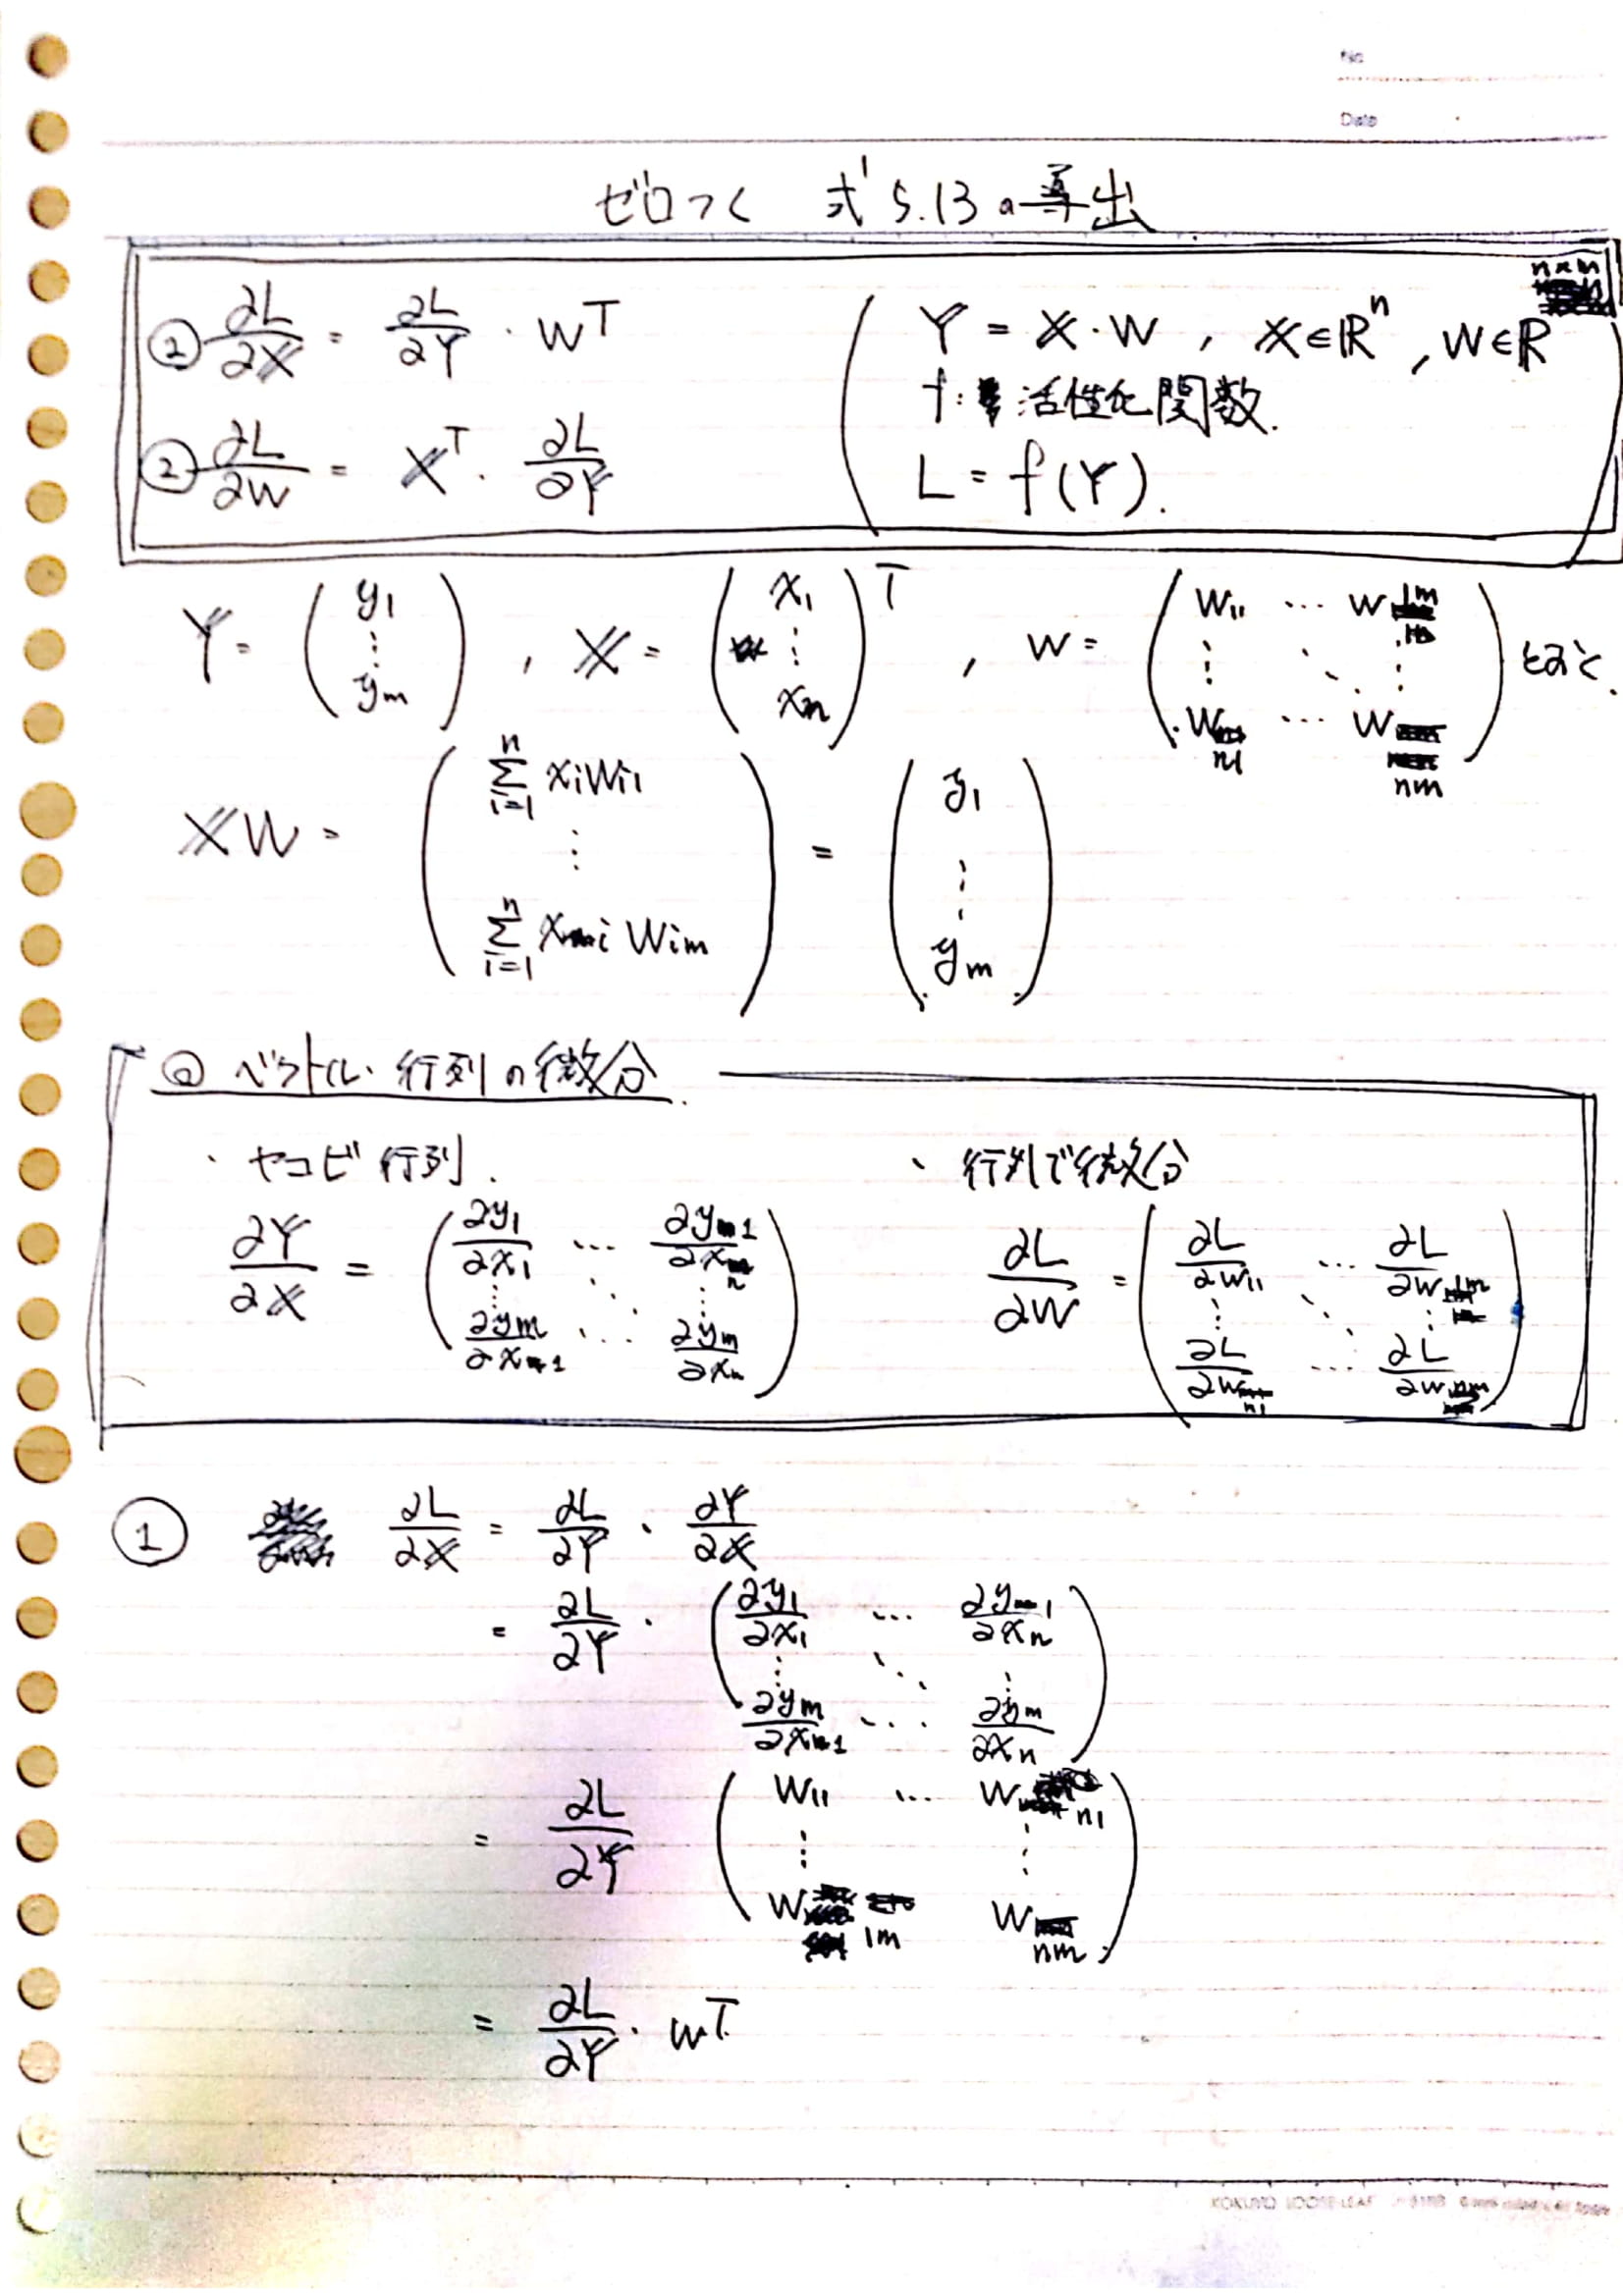 No.
Date
ゼロつく 式5.13の導出
② ∂L/∂X = ∂L/∂Y · W^T
( Y = X · W , X ∈ R^n , W ∈ R^{n×m}
f: 活性化関数.
② ∂L/∂W = X^T · ∂L/∂Y
L = f(Y). )
Y = ( y1 ⋮ ym ) , X = ( x1 ⋮ xn )^T , W = ( w11 … w1m ⋮ ⋱ ⋮ wn1 … wnm ) とおく.
XW = ( Σ_{i=1}^{n} xi wi1 ⋮ Σ_{i=1}^{n} xi wim ) = ( y1 ⋮ ym )
◎ ベクトル・行列の微分
・ヤコビ行列.
∂Y/∂X = ( ∂y1/∂x1 … ∂y1/∂xn ⋮ ⋱ ⋮ ∂ym/∂x1 … ∂ym/∂xn )
・行列で微分
∂L/∂W = ( ∂L/∂w11 … ∂L/∂w1m ⋮ ⋱ ⋮ ∂L/∂wn1 … ∂L/∂wnm )
① ∂L/∂X = ∂L/∂Y · ∂Y/∂X
= ∂L/∂Y · ( ∂y1/∂x1 … ∂y1/∂xn ⋮ ⋱ ⋮ ∂ym/∂x1 … ∂ym/∂xn )
= ∂L/∂Y ( w11 … wn1 ⋮ ⋮ w1m wnm )
= ∂L/∂Y · W^T
KOKUYO LOOSE-LEAF